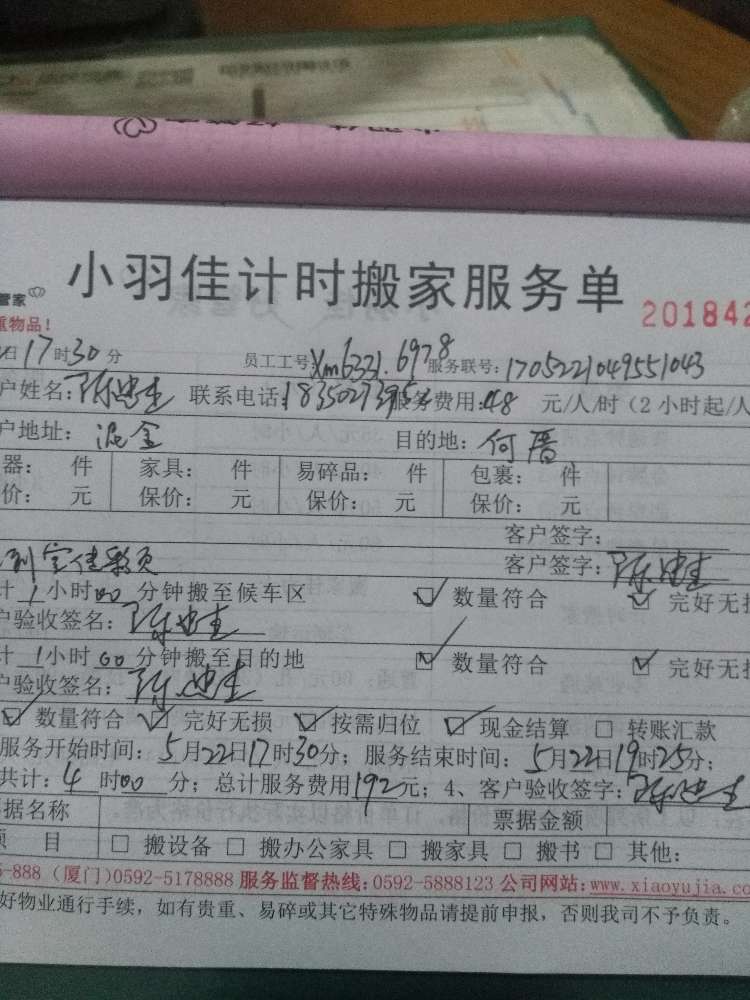 小羽佳计时搬家服务单
管家
201842
重物品！
日17时30分 员工工号:Xm6331.6978 服务联号:1705221049551043
户姓名: 联系电话: 服务费用:48 元/人/时（2小时起/人
户地址: 混金 目的地: 何厝
器: 件 家具: 件 易碎品: 件 包裹: 件
价: 元 保价: 元 保价: 元 保价: 元
客户签字:
客户签字:
计1小时00分钟搬至候车区 数量符合 完好无损
户验收签名:
计1小时00分钟搬至目的地 数量符合 完好无损
户验收签名:
数量符合 完好无损 按需归位 现金结算 转账汇款
服务开始时间: 5月22日17时30分; 服务结束时间: 5月22日19时25分;
共计:4时00分; 总计服务费用192元; 4、客户验收签字:
据名称 票据金额
项 目 搬设备 搬办公家具 搬家具 搬书 其他:
5-888 (厦门)0592-5178888 服务监督热线:0592-5888123 公司网站:www.xiaoyujia.co
好物业通行手续，如有贵重、易碎或其它特殊物品请提前申报，否则我司不予负责。